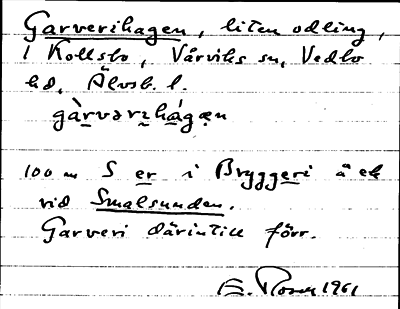 Garverihagen, liten odling,
i Kollsbo, Vårviks sn, Vedbo
hd, Älvsb. l.
gàrvərɩhágən
100 m S er i Bryggeri å ek
vid Smalsunden.
Garveri därintill förr.
1961